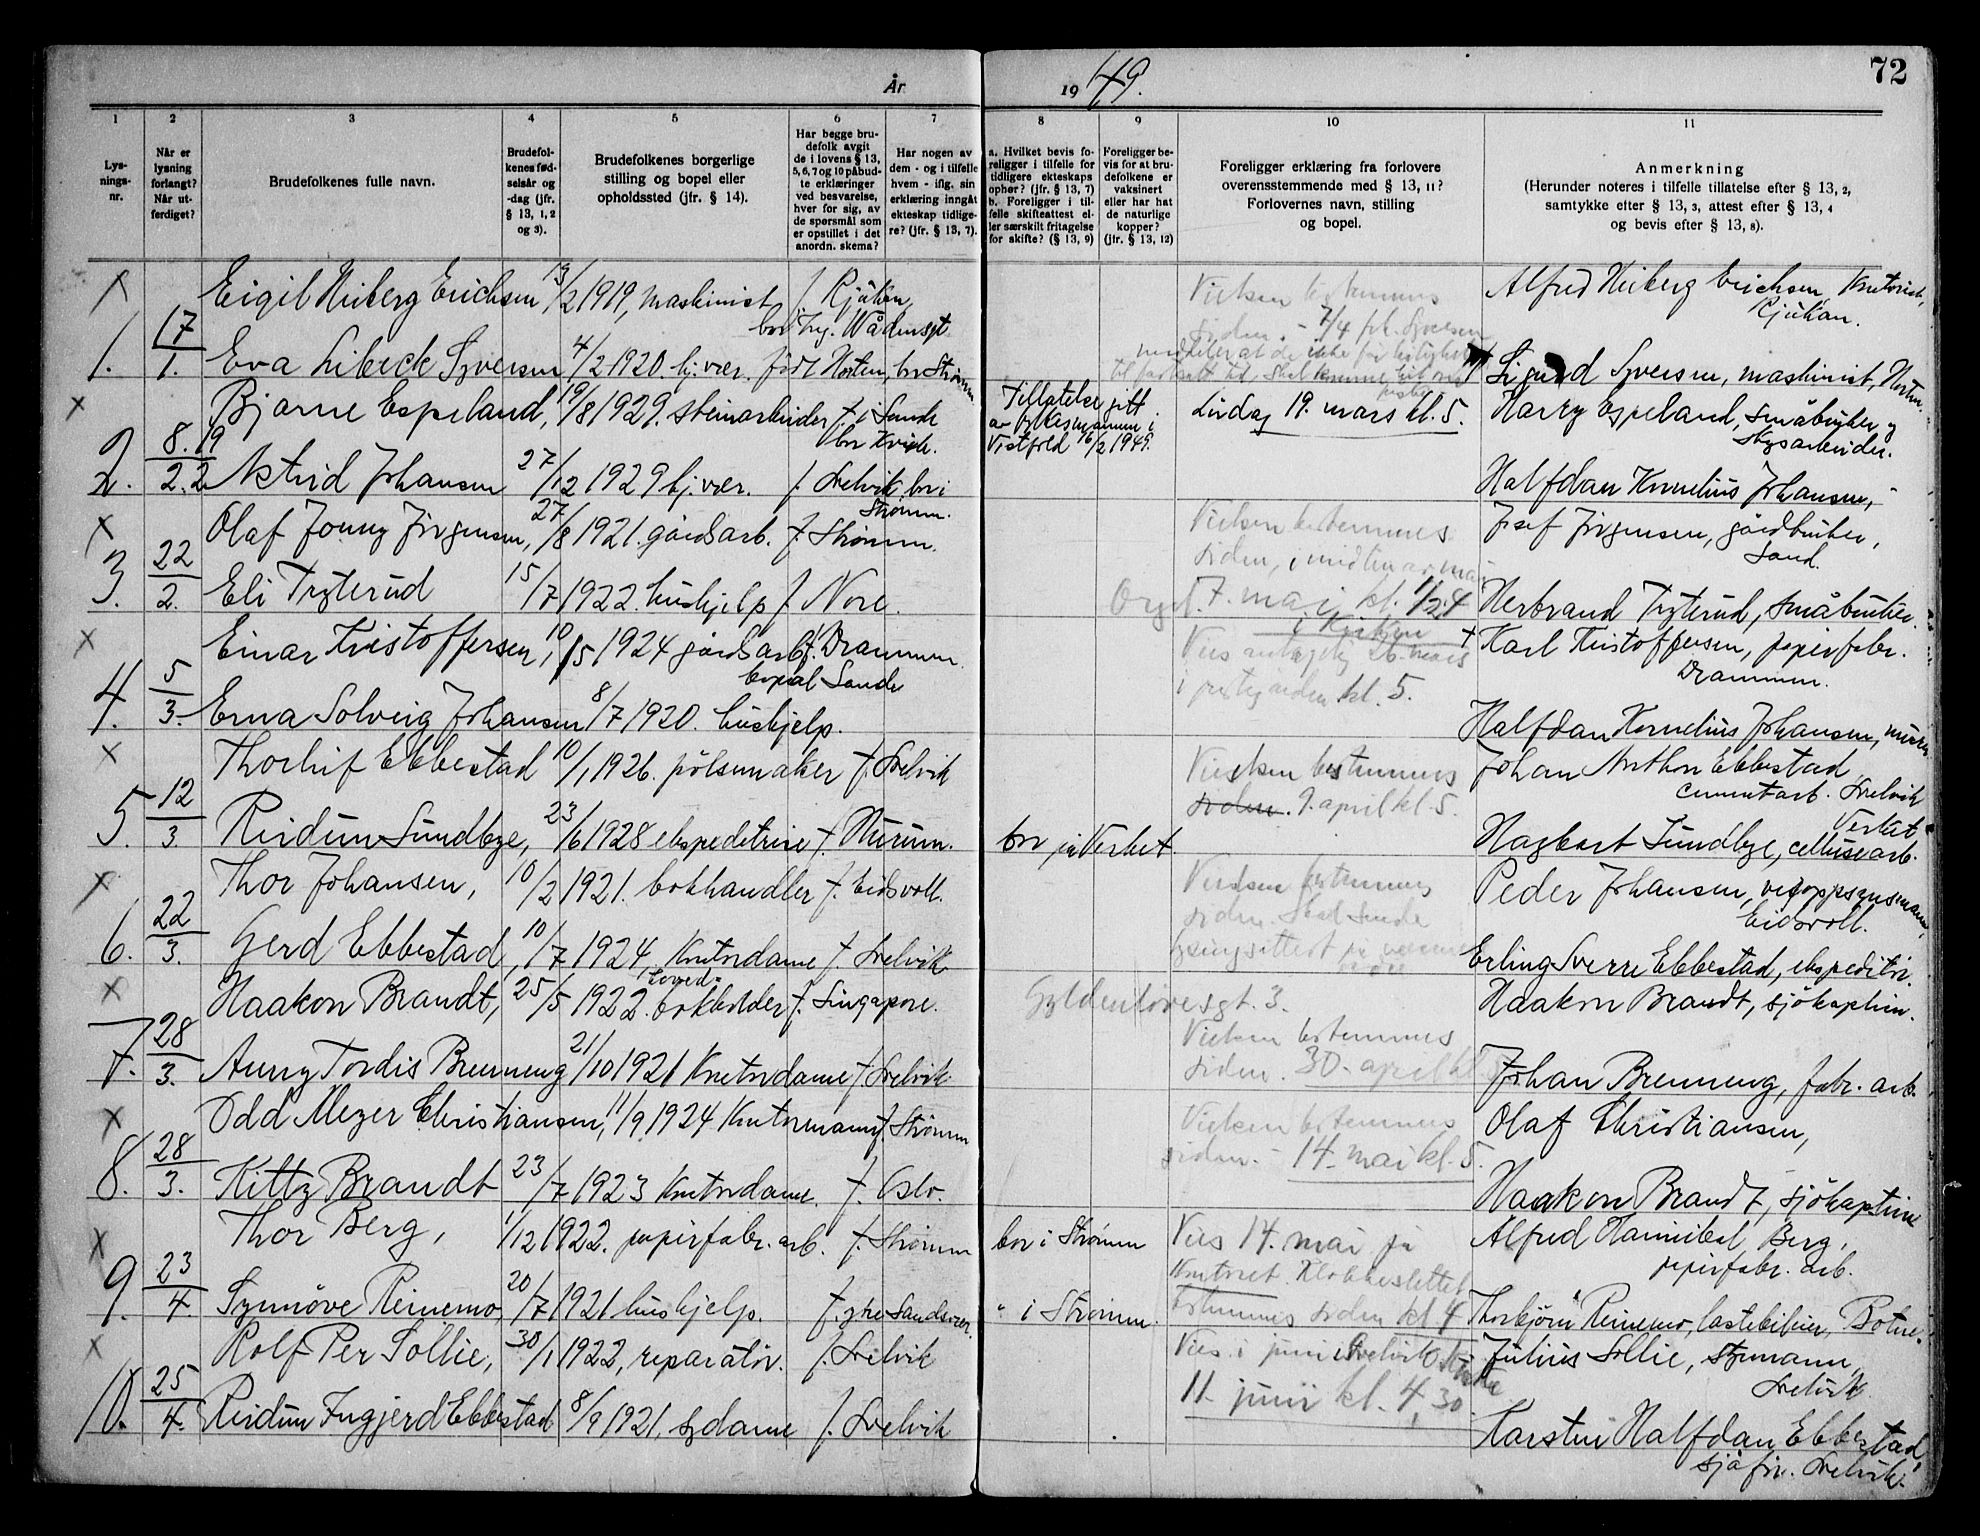 År
19 49.
72
1
2
3
4
5
6
7
8
9
10
11
Lys-
nings-
nr.
Når er
lysning
forlangt?
Når ut-
ferdiget?
Brudefolkenes fulle navn.
Brudefol-
kenes fød-
selsår og
-dag (jfr.
§ 13, 1, 2
og 3).
Brudefolkenes borgerlige
stilling og bopel eller
opholdssted (jfr. § 14).
Har begge bru-
defolk avgit
de i lovens § 13,
5, 6, 7 og 10 påbud-
te erklæringer
ved besvarelse,
hver for sig, av
de spørsmål som
er opstillet i det
anordn. skema?
Har nogen av
dem - og i tilfelle
hvem - iflg. sin
erklæring inngåt
ekteskap tidlige-
re? (jfr. § 13, 7).
a. Hvilket bevis fo-
religger i tilfelle for
tidligere ekteskaps
ophør? (jfr. § 13, 7)
b. Foreligger i til-
felle skifteattest el-
ler særskilt fritagelse
for skifte? (§ 13, 9)
Foreligger be-
vis for at bru-
defolkene er
vaksinert
eller har hat
de naturlige
kopper?
(jfr. § 13, 12)
Foreligger erklæring fra forlovere
overensstemmende med § 13, 11?
Forlovernes navn, stilling
og bopel.
Anmerkning
(Herunder noteres i tilfelle tillatelse efter § 13, 2,
samtykke efter § 13, 3, attest efter § 13, 4
og bevis efter § 13, 8).
x Eigil Heiberg Erichsen, 13/2 1919, maskinist f. Rjukan,
Vielsen bestemmes
Alfred Heiberg Erichsen,
Rjukan.
siden. - 7/4
1. 17/1. Eva Libeck Syversen 4/2 1920. hj.vær. født Horten, bor Strømm.
Sigurd Syversen, maskinist, Horten.
x Bjarne Espeland, 19/8 1929. steinarbeider f. i Sande
bor Kvirk.
Tillatelse gitt
av fylkesmannen i
Vestfold 16/2 1949.
Lørdag 19. mars kl. 5.
Harry Espeland, småbruker og
skogsarbeider.
2. 8. 19/2. 2 Astrid Johansen 27/12 1929 hj.vær. f. Svelvik, bor i
Strømm.
Halfdan Kornelius Johansen,
x Olaf Jonny Jørgensen, 27/8 1921. gårdsarb. f. Strømm.
Vielsen bestemmes
siden, i midten av mai
Josef Jørgensen, gårdbruker,
Sand.
3. 22/2. Eli Tryterud 15/7 1922. hushjelp f. Nore.
Orgel. 7. mai kl. 1/2 4
i Kirken
Herbrand Tryterud, småbruker.
x Einar Kristoffersen, 10/5 1924 gårdsarb. f. Drammen.
bopæl Sande
Vies antagelig 26. mars
i prestegården kl. 5.
+ Karl Kristoffersen, papirfabr.
Drammen.
4. 5/3. Erna Solveig Johansen 8/7 1920. hushjelp.
Halfdan Kornelius Johansen,
x Thorleif Ebbestad 10/1 1926. pølsemaker f. Svelvik
Vielsen bestemmes
siden. 9. april kl. 5.
Johan Anthon Ebbestad
cementarb. Svelvik
5. 12/3 Reidun Sundbye, 23/6 1928 ekspeditrise f. Hurum.
bor på Verket.
Hagbart Sundbye, cellulosearb.
Verket
x Thor Johansen, 10/2 1921. bokhandler f. Eidsvoll.
Vielsen bestemmes
siden. Skal sende
lysningsattest på
Peder Johansen, vegoppsynsmann,
Eidsvoll.
6. 22/3. Gerd Ebbestad, 10/7 1924, kontordame f. Svelvik
Erling Sverre Ebbestad, ekspeditør.
x Haakon Brandt, 25/5 1922. hoved-
bokholder f. Singapore.
Gyldenløvesgt. 3.
Haakon Brandt, sjøkaptein.
7. 28/3. Anny Tordis Brenneng 21/10 1921 kontordame f. Svelvik.
Vielsen bestemmes
siden. 30. april kl. 5
Johan Brenneng, fabr. arb.
x Odd Meyer Christiansen, 11/9 1924 kontormann f. Strømm
Vielsen bestemmes
siden. - 14. mai kl. 5.
Olaf Christiansen,
8. 28/3. Kitty Brandt 23/7 1923 kontordame. f. Oslo.
Haakon Brandt, sjøkaptein
x Thor Berg, 1/12 1922. papirfabr. arb. f. Strømm
bor i Strømm
Vies 14. mai på
kontoret. Klokkeslettet
Alfred Hannibal Berg,
papirfabr. arb.
9. 23/4. Synnøve Reinemo, 20/7 1921 hushjelp. f. ytre Sandsvær.
" i Strømm.
bestemmes siden kl 4
Thorbjørn Reinemo, lastebileier, Botne.
x Rolf Per Sollie, 30/1 1922, reparatør. f. Svelvik
Vies i juni i Svelvik Kirke
Julius Sollie, styrmann,
Svelvik
10. 25/4. Reidun Ingjerd Ebbestad 8/9 1921, sydame f. Svelvik
11. juni kl. 4,30
Karsten Halfdan Ebbestad,
sjåfør. Svelvik.